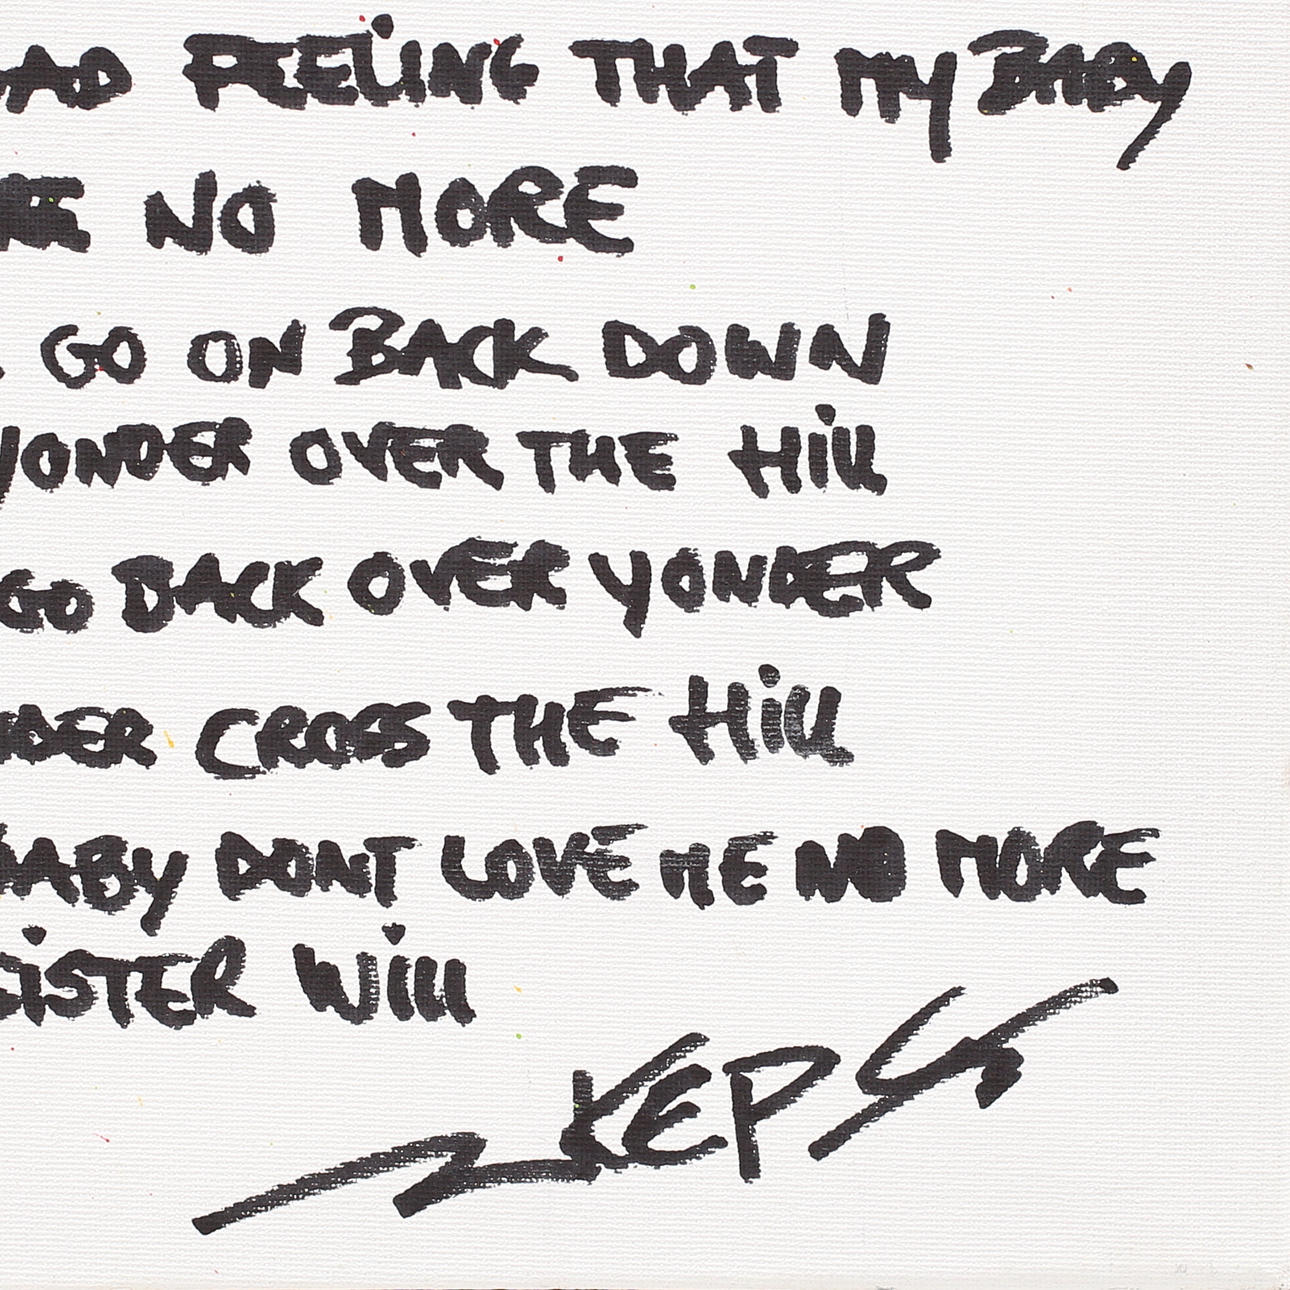 AD FEELING THAT MY BABY
NO MORE
GO ON BACK DOWN
YONDER OVER THE Hill
GO BACK OVER YONDER
DER CROSS THE Hill
BABY DONT LOVE ME NO MORE
SISTER Will
KEPS